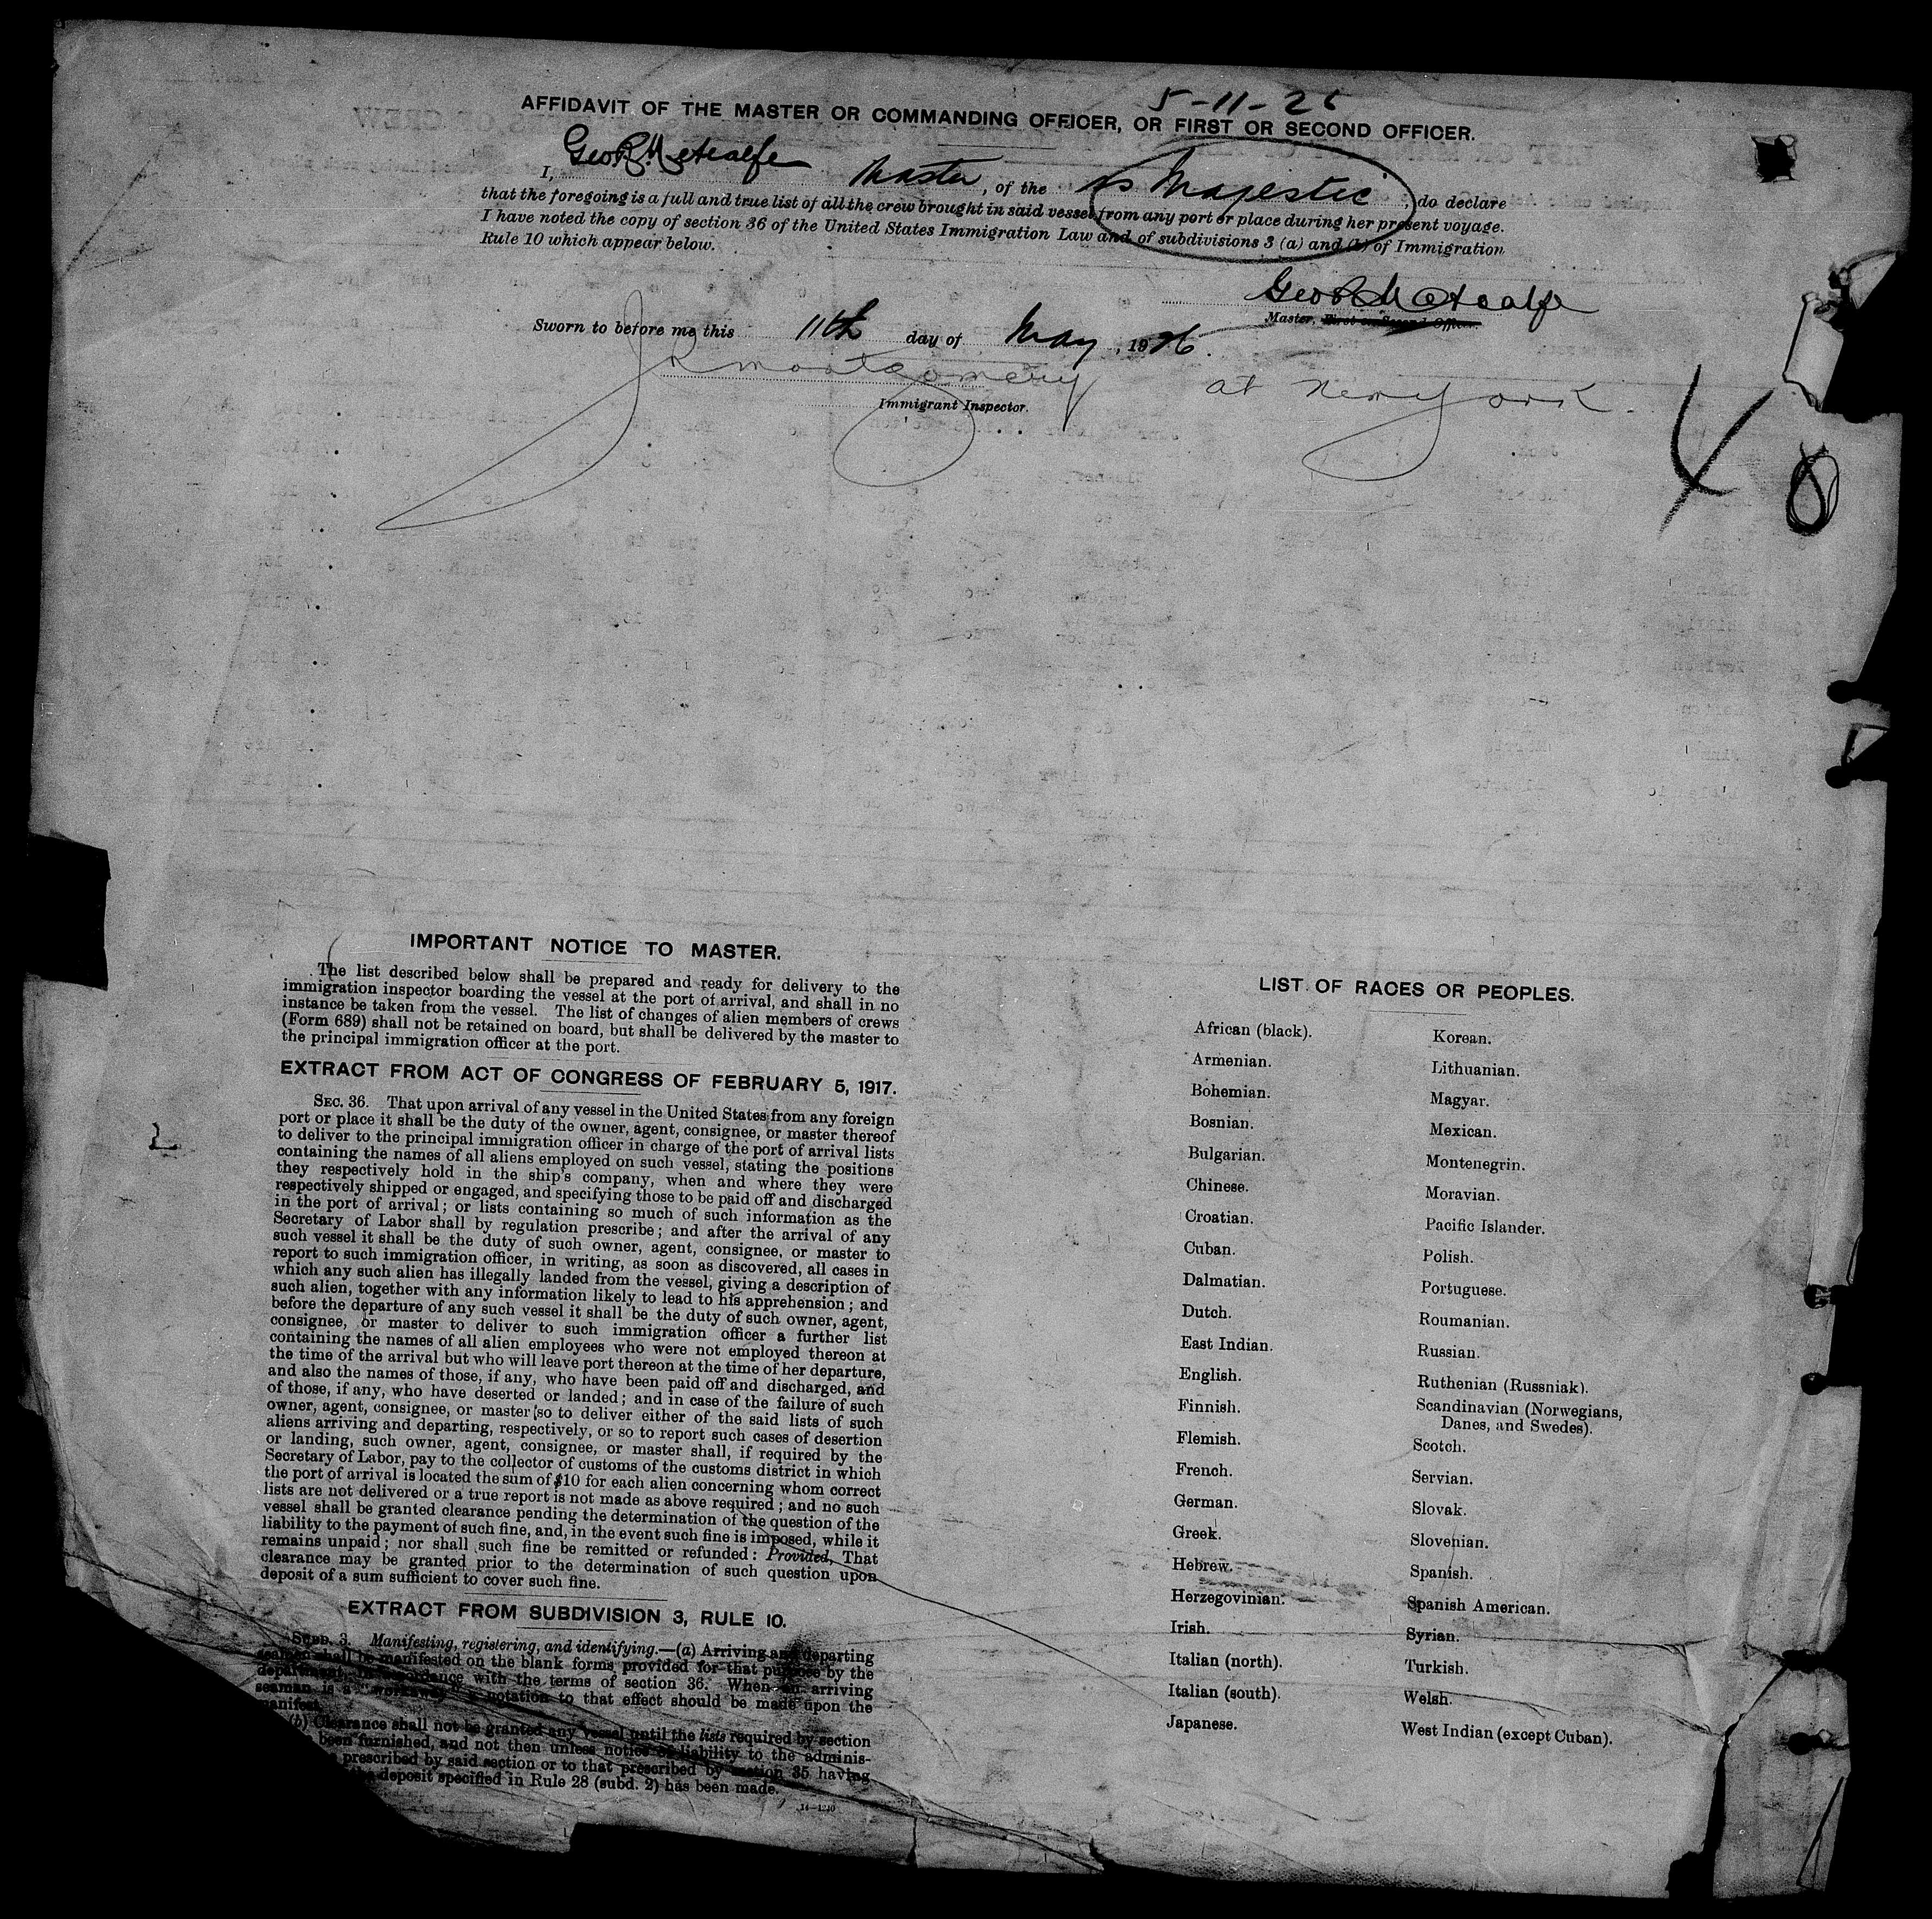 5-11-26
AFFIDAVIT OF THE MASTER OR COMMANDING OFFICER, OR FIRST OR SECOND OFFICER.
I, Geo R Metcalfe Master, of the ss Majestic, do declare
that the foregoing is a full and true list of all the crew brought in said vessel from any port or place during her present voyage.
I have noted the copy of section 36 of the United States Immigration Law and of subdivisions 3 (a) and (b) of Immigration
Rule 10 which appear below.
Geo R Metcalfe
Master, First or Second Officer.
Sworn to before me this 11th day of May, 1926.
JR Montgomery at New York.
Immigrant Inspector.
IMPORTANT NOTICE TO MASTER.
The list described below shall be prepared and ready for delivery to the
immigration inspector boarding the vessel at the port of arrival, and shall in no
instance be taken from the vessel. The list of changes of alien members of crews
(Form 689) shall not be retained on board, but shall be delivered by the master to
the principal immigration officer at the port.
EXTRACT FROM ACT OF CONGRESS OF FEBRUARY 5, 1917.
SEC. 36. That upon arrival of any vessel in the United States from any foreign
port or place it shall be the duty of the owner, agent, consignee, or master thereof
to deliver to the principal immigration officer in charge of the port of arrival lists
containing the names of all aliens employed on such vessel, stating the positions
they respectively hold in the ship's company, when and where they were
respectively shipped or engaged, and specifying those to be paid off and discharged
in the port of arrival; or lists containing so much of such information as the
Secretary of Labor shall by regulation prescribe; and after the arrival of any
such vessel it shall be the duty of such owner, agent, consignee, or master to
report to such immigration officer, in writing, as soon as discovered, all cases in
which any such alien has illegally landed from the vessel, giving a description of
such alien, together with any information likely to lead to his apprehension; and
before the departure of any such vessel it shall be the duty of such owner, agent,
consignee, or master to deliver to such immigration officer a further list
containing the names of all alien employees who were not employed thereon at
the time of the arrival but who will leave port thereon at the time of her departure,
and also the names of those, if any, who have been paid off and discharged, and
of those, if any, who have deserted or landed; and in case of the failure of such
owner, agent, consignee, or master so to deliver either of the said lists of such
aliens arriving and departing, respectively, or so to report such cases of desertion
or landing, such owner, agent, consignee, or master shall, if required by the
Secretary of Labor, pay to the collector of customs of the customs district in which
the port of arrival is located the sum of $10 for each alien concerning whom correct
lists are not delivered or a true report is not made as above required; and no such
vessel shall be granted clearance pending the determination of the question of the
liability to the payment of such fine, and, in the event such fine is imposed, while it
remains unpaid; nor shall such fine be remitted or refunded: Provided, That
clearance may be granted prior to the determination of such question upon
deposit of a sum sufficient to cover such fine.
EXTRACT FROM SUBDIVISION 3, RULE 10.
SUBD. 3. Manifesting, registering, and identifying.—(a) Arriving and departing
seamen shall be manifested on the blank forms provided for that purpose by the
department, in accordance with the terms of section 36. When an arriving
seaman is a "workaway" a notation to that effect should be made upon the
manifest.
(b) Clearance shall not be granted any vessel until the lists required by section
been furnished, and not then unless notice of liability to the adminis-
prescribed by said section or to that prescribed by section 35 having
the deposit specified in Rule 28 (subd. 2) has been made.
14—1240
LIST OF RACES OR PEOPLES.
African (black).
Armenian.
Bohemian.
Bosnian.
Bulgarian.
Chinese.
Croatian.
Cuban.
Dalmatian.
Dutch.
East Indian.
English.
Finnish.
Flemish.
French.
German.
Greek.
Hebrew.
Herzegovinian.
Irish.
Italian (north).
Italian (south).
Japanese.
Korean.
Lithuanian.
Magyar.
Mexican.
Montenegrin.
Moravian.
Pacific Islander.
Polish.
Portuguese.
Roumanian.
Russian.
Ruthenian (Russniak).
Scandinavian (Norwegians,
Danes, and Swedes).
Scotch.
Servian.
Slovak.
Slovenian.
Spanish.
Spanish American.
Syrian.
Turkish.
Welsh.
West Indian (except Cuban).